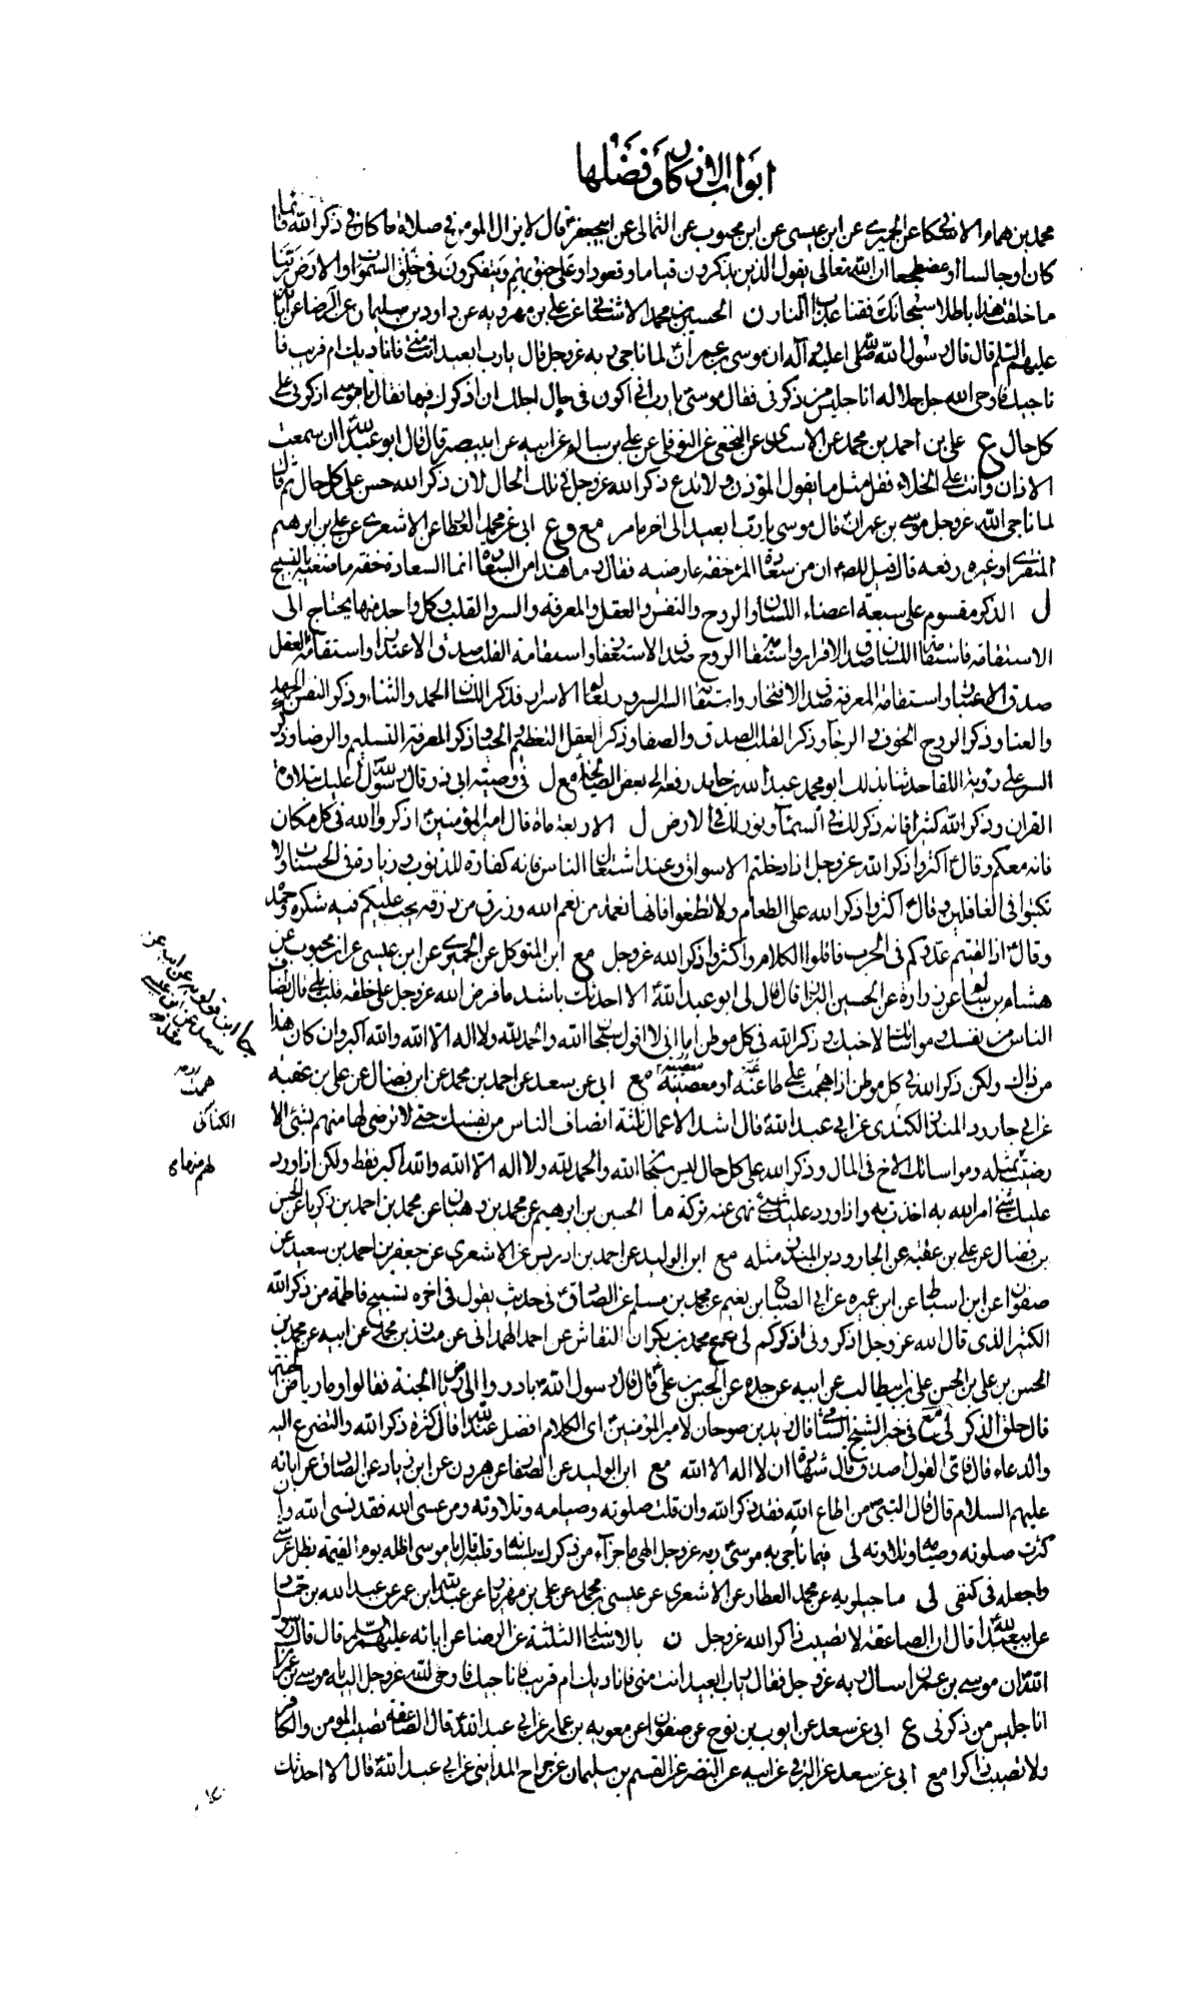 ابواب الاذكار وفضلها
محمد بن همام الاسكافي عن الحميري عن ابن عيسى عن ابن محبوب عن الثمالي عن ابيجعفر ع قال لا يزال المومن في صلاة ما كان في ذكر الله قائما
كان او جالسا او مضطجعا ان الله تعالى يقول الذين يذكرون الله قياما وقعودا وعلى جنوبهم ويتفكرون في خلق السموات والارض ربنا
ما خلقت هذا باطلا سبحانك فقنا عذاب النار ن الحسين بن محمد الاشناني عن علي بن مهرويه عن داود بن سليمان عن الرضا عن ابائه
عليهم السلم قال قال رسول الله صلى الله عليه وآله ان موسى بن عمران لما ناجى ربه عز وجل قال يا رب ابعيد انت مني فاناديك ام قريب فا
ناجيك فاوحى الله جل جلاله انا جليس من ذكرني فقال موسى يا رب اني اكون في حال اجلك ان اذكرك فيها فقال يا موسى اذكرني على
كل حال ع علي بن احمد بن محمد عن الاسدي عن النخعي عن النوفلي عن علي بن سالم عن ابيه عن ابيبصير قال قال ابو عبد الله ع ان سمعت
الاذان وانت على الخلاء فقل مثل ما يقول المؤذن ولا تدع ذكر الله عز وجل في تلك الحال لان ذكر الله حسن على كل حال ثم قال
لما ناجى الله عز وجل موسى بن عمران قال موسى يا رب ابعيد الى اخر ما مر مع و ع ابي عن محمد العطار عن الاشعري عن علي بن ابرهيم
المنقري او غيره رفعه قال قيل للصادق ان من سعادة المرء خفة عارضيه فقال وما هذا من السعادة انما السعادة خفة ماضغيه بالتسبيح
ل الذكر مقسوم على سبعة اعضاء اللسان والروح والنفس والعقل والمعرفة والسر والقلب وكل واحد منها يحتاج الى
الاستقامة فاستقامة اللسان صدق الاقرار واستقامة الروح صدق الاستغفار واستقامة القلب صدق الاعتذار واستقامة العقل
صدق الاعتبار واستقامة المعرفة صدق الافتخار واستقامة السر السرور بعالم الاسرار فذكر اللسان الحمد والثناء وذكر النفس الجهد
والعناء وذكر الروح الخوف والرجاء وذكر القلب الصدق والصفاء وذكر العقل التعظيم والحياء وذكر المعرفة التسليم والرضا وذكر
السر على رؤية اللقاء حدثنا بذلك ابو محمد عبد الله بن حامد رفعه الى بعض الصالحين مع ل في وصيته ابي ذر قال رسول الله عليك بتلاوة
القران وذكر الله كثيرا فانه ذكر لك في السماء ونور لك في الارض ل الاربعمائة قال امير المؤمنين ع اذكروا الله في كل مكان
فانه معكم وقال ع اكثروا ذكر الله عز وجل اذا دخلتم الاسواق وعند اشتغال الناس فانه كفارة للذنوب وزيادة في الحسنات ولا
تكتبوا في الغافلين وقال ع اكثروا ذكر الله على الطعام ولا تطغوا فانها نعمة من نعم الله ورزق من رزقه يجب عليكم فيه شكره وحمده
وقال ع اذا لقيتم عدوكم في الحرب فاقلوا الكلام واكثروا ذكر الله عز وجل مع ابن المتوكل عن الحميري عن ابن عيسى عن ابن محبوب عن
هشام بن سالم عن زرارة عن الحسين البزاز قال قال لي ابو عبد الله ع الا احدثك باشد ما فرض الله عز وجل على خلقه قلت بلى قال انصاف
الناس من نفسك ومواساتك لاخيك وذكر الله في كل موطن اما اني لا اقول سبحان الله والحمد لله ولا اله الا الله والله اكبر وان كان هذا
من ذاك ولكن ذكر الله في كل موطن اذا هجمت على طاعته او معصيته مع ابي عن سعد عن احمد بن محمد عن ابن فضال عن علي بن عقبة
عن ابي جارود المنذر الكندي عن ابي عبد الله ع قال اشد الاعمال ثلثة انصاف الناس من نفسك حتى لا ترضى لها منهم بشيء الا
رضيت بمثله ومواساتك الاخ في المال وذكر الله على كل حال ليس سبحان الله والحمد لله ولا اله الا الله والله اكبر فقط ولكن اذا ورد
عليك شيء امر الله به اخذت به واذا ورد عليك شيء نهى عنه تركته ما الحسين بن ابرهيم عن محمد بن وهبان عن محمد بن احمد بن زكريا عن الحسن
بن فضال عن علي بن عقبة عن الجارود بن المنذر مثله مع ابن الوليد عن احمد بن ادريس عن الاشعري عن جعفر بن احمد بن سعيد عن
صفوان عن ابن اسباط عن ابن عميرة عن ابي الصباح بن نعيم عن محمد بن مسلم عن الصادق ع في حديث يقول في اخره تسبيح فاطمة من ذكر الله
الكثير الذي قال الله عز وجل اذكروني اذكركم لي مع محمد بن بكران النقاش عن احمد الهمداني عن منذر بن محمد عن ابيه عن محمد بن
الحسن بن علي بن الحسين عن ابيه عن جده عن الحسن بن علي ع قال قال رسول الله بادروا الى رياض الجنة فقالوا وما رياض الجنة
قال حلق الذكر لي مع في خبر الشيخ الشامي قال زيد بن صوحان لامير المؤمنين ع اي الكلام افضل عند الله قال كثرة ذكر الله والتضرع اليه
والدعاء قال فاي القول اصدق قال شهادة ان لا اله الا الله مع ابن الوليد عن الصفار عن هرون عن ابن زياد عن الصادق عن ابائه
عليهم السلام قال قال النبي ص من اطاع الله فقد ذكر الله وان قلت صلوته وصيامه وتلاوته ومن عصى الله فقد نسي الله وان
كثرت صلوته وصيامه وتلاوته لي فيما ناجى به موسى ع ربه عز وجل الهي ما جزاء من ذكرك بلسانه وقلبه قال يا موسى اظله يوم القيمة بظل عرشي
واجعله في كنفي لي ماجيلويه عن محمد العطار عن الاشعري عن عيسى بن محمد عن علي بن مهزيار عن عبد الله بن عمر عن عبد الله بن حماد
عن ابيعبد الله ع قال ان الصاعقة لا تصيب ذاكرا لله عز وجل ن بالاسانيد الثلثة عن الرضا عن ابائه عليهم السلم قال قال رسول
الله ان موسى بن عمران سال ربه عز وجل فقال يا رب ابعيد انت مني فاناديك ام قريب فاناجيك فاوحى الله عز وجل اليه يا موسى بن عمران
انا جليس من ذكرني ع ابي عن سعد عن ايوب بن نوح عن صفوان عن معوية بن عمار عن ابي عبد الله ع قال الصاعقة تصيب المومن والكافر
ولا تصيب ذاكرا مع ابي عن سعد عن البرقي عن ابيه عن النضر عن القسم بن سليمان عن جراح المدايني عن ابي عبد الله ع قال الا احدثك
جا ابن قولويه عن ابيه عن
سعد عن ابن عيسى
مثله
هممت
الكناني